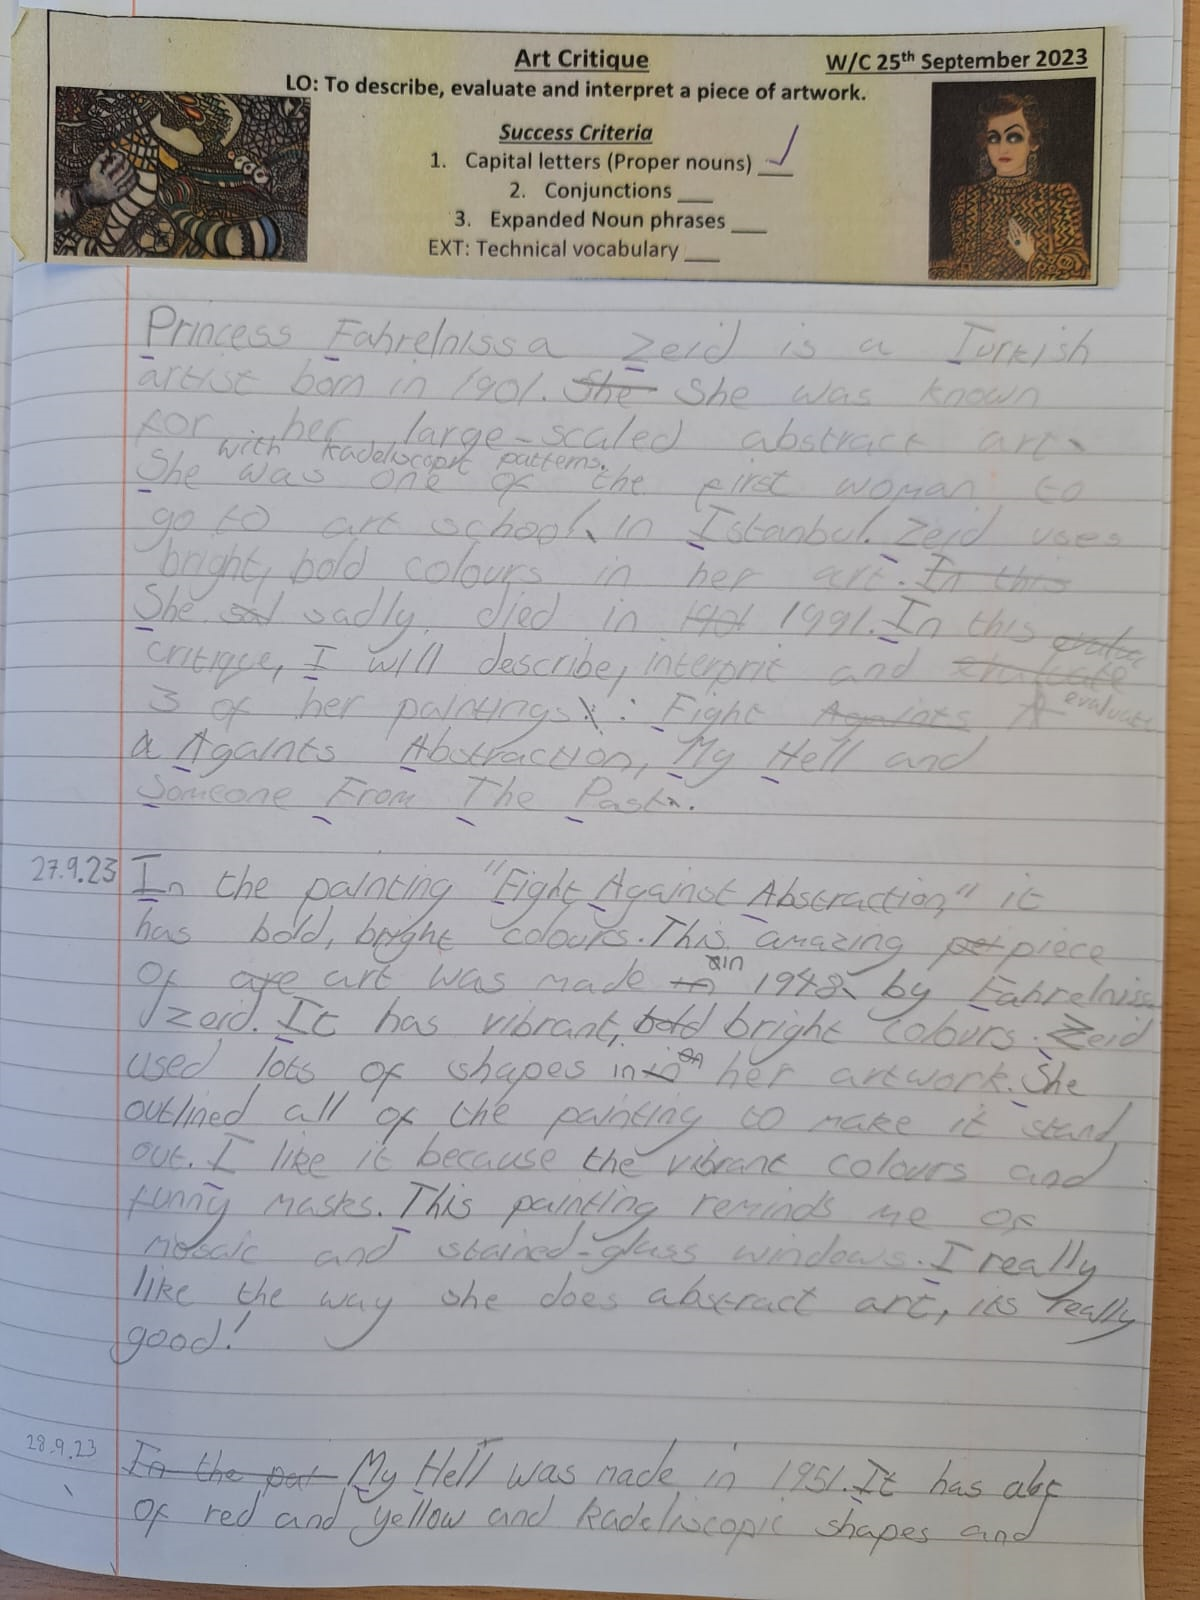 Art Critique
W/C 25th September 2023
LO: To describe, evaluate and interpret a piece of artwork.
Success Criteria
1. Capital letters (Proper nouns) ___
2. Conjunctions ___
3. Expanded Noun phrases ___
EXT: Technical vocabulary ___
Princess Fahrelnissa Zeid is a Turkish
artist born in 1901. She She was known
for her large-scaled abstract art
with kadeliscopic patterns.
She was one of the first woman to
go to art school in Istanbul. Zeid uses
bright, bold colours in her art. In this
She sad sadly, died in 1901 1991. In this evalu
critique, I will describe, interprit and evaluate
evaluate
3 of her paintings: Fight Againts A
a Againts Abstraction, My Hell and
Someone From The Past.
27.9.23
In the painting "Fight Against Abstraction," it
has bold, bright colours. This amazing pei piece
in
of are art was made in 1948 by Fahrelnissa
zeid. It has vibrant, bold bright colours. Zeid
used lots of shapes in her artwork. She
outlined all of the painting to make it stand
out. I like it because the vibrant colours and
funny masks. This painting reminds me of
mosaic and stained-glass windows. I really
like the way she does abstract art, its really
good!
28.9.23
In the pai My Hell was made in 1951. It has
of red and yellow and kadeliscopic shapes and